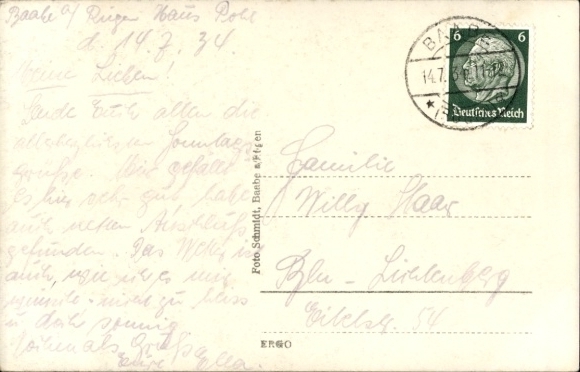 Baabe a/ Rügen Haus Pohl
d. 14.7.34
Meine Lieben!
Sende Euch allen die
allerherzlichsten Sonntags
grüße. Mir gefällt
es hier sehr gut, habe
auch netten Anschluß
gefunden. Das Wetter ist
auch, wie ich es mir
wünsche, nicht zu heiss
u. doch sonnig
als Grüße
Eure Ella.
Foto Schmidt, Baabe a/Rügen
BAABE
14.7.34 11-12
6 6
Deutsches Reich
Familie
Willy Haar
Bln-Lichtenberg
Eitelstr. 54
ERGO